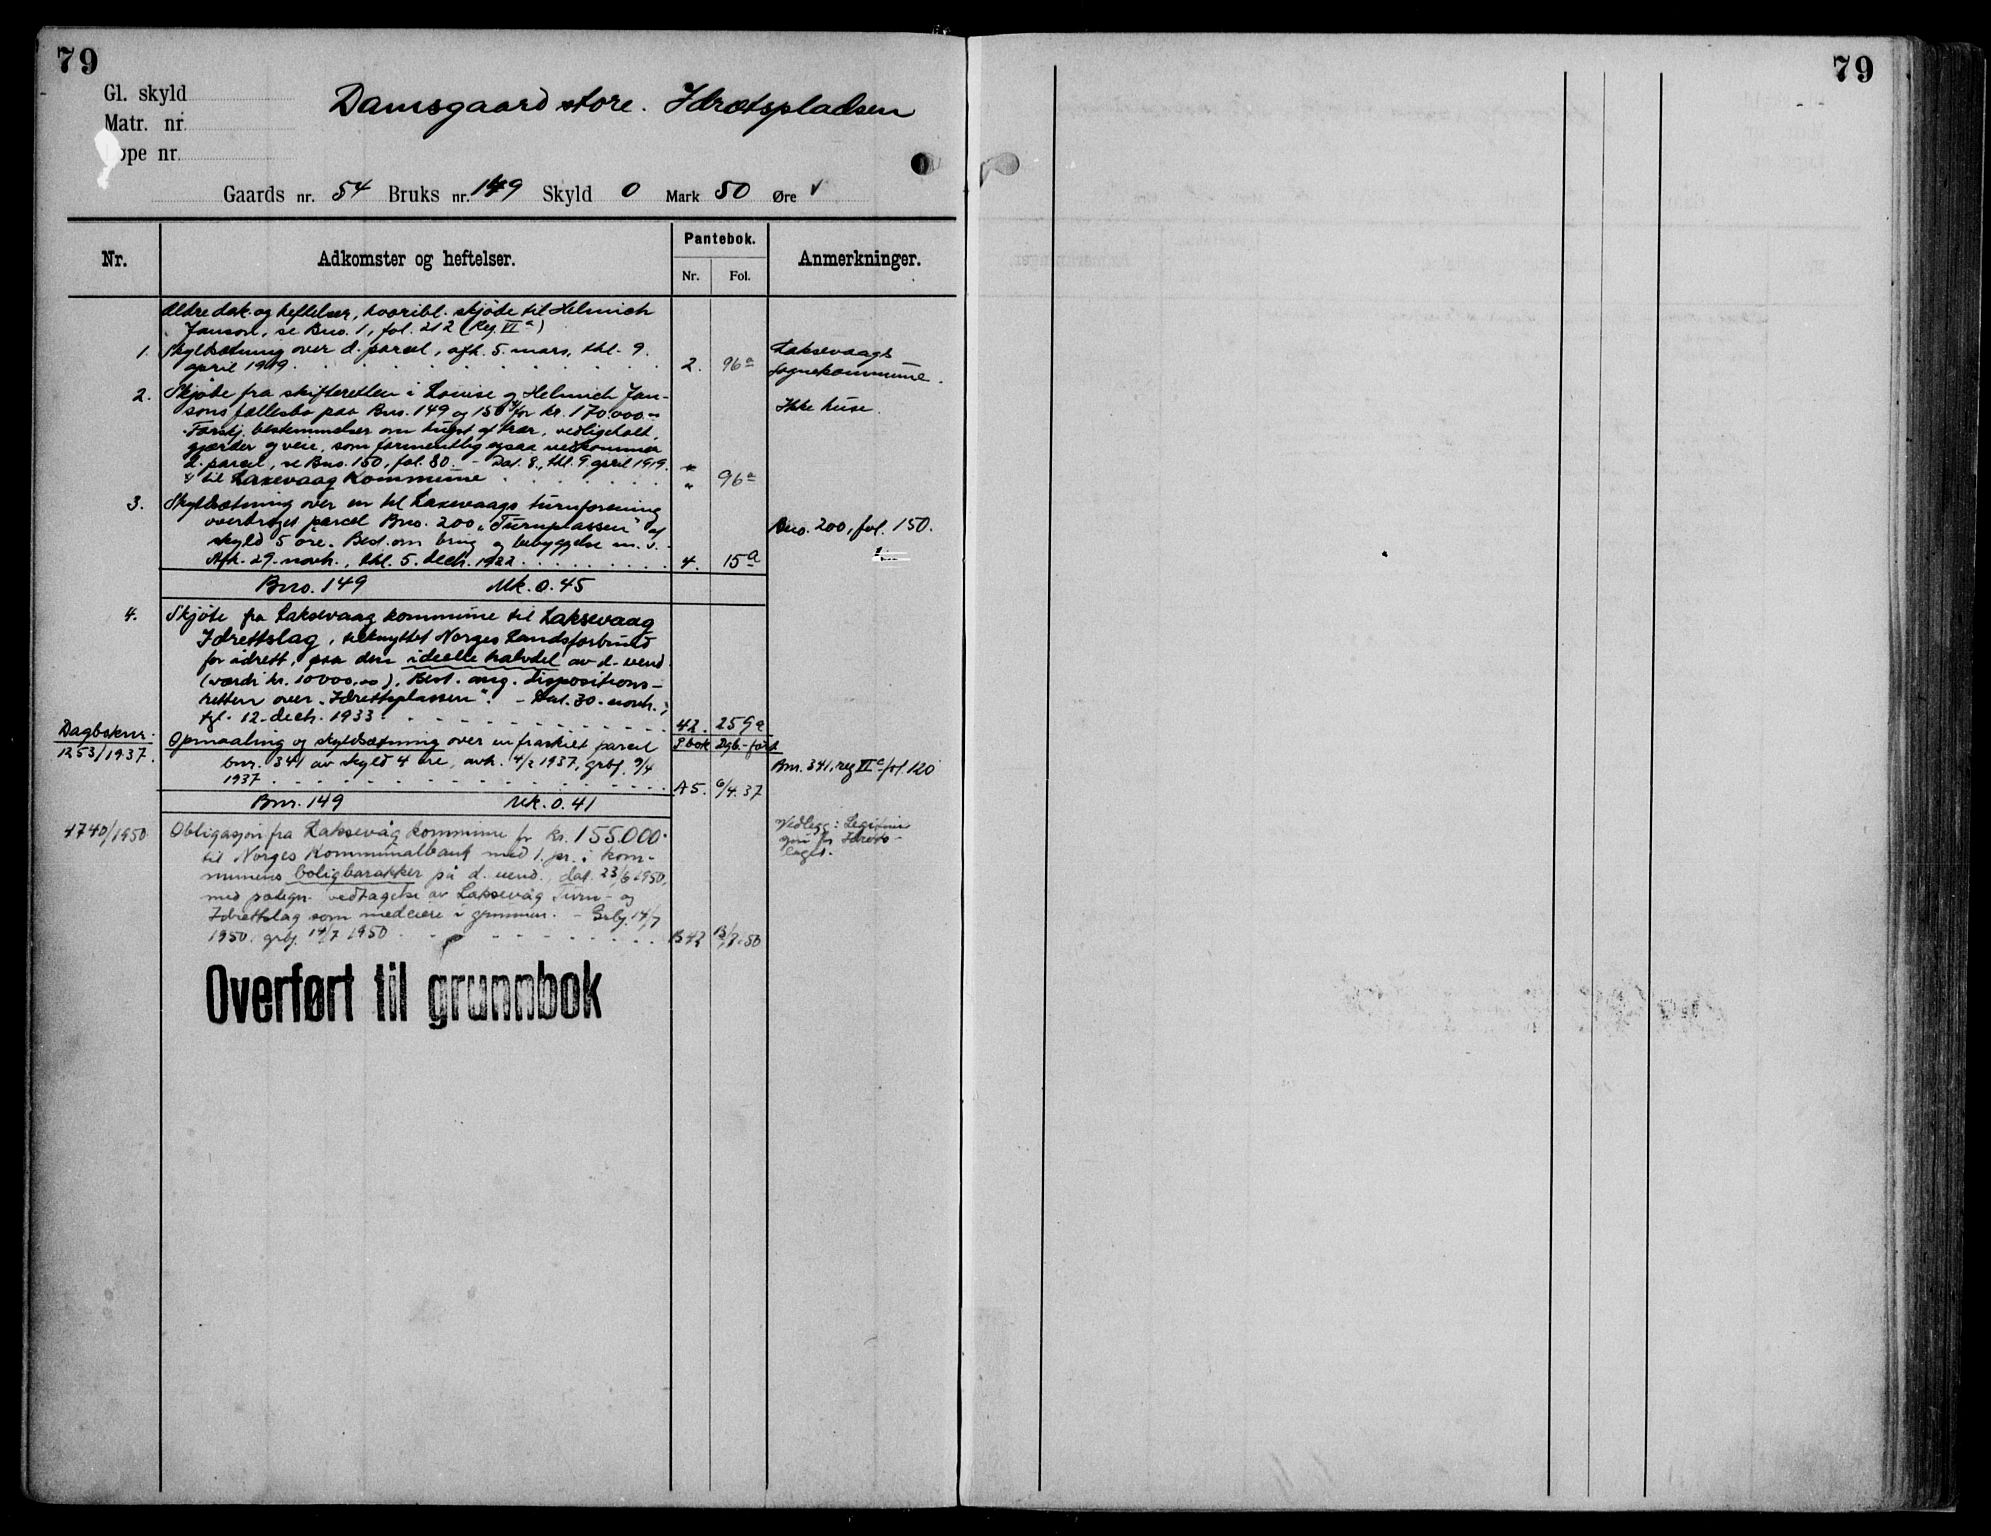 79
79
Gl. skyld
Matr. nr.
ope nr.
Damsgaard store. Idrætspladsen
Gaards nr. 54 Bruks nr. 149 Skyld 0 Mark 50 Øre
Nr.
Adkomster og heftelser.
Pantebok.
Nr.
Fol.
Anmerkninger.
Ældre dok. og heftelser, hvoribl. skjøde til Helmich
Janson, se Bno. 1, fol. 212 (Reg. II a)
1. Skyldsætning over d. parcel, afh. 5. mars, thl. 9.
april 1919. 2. 96 a
Laksevaags
sognekommune.
2. Skjøde fra skifteretten i Louise og Helmich Jan-
sons fællesbo paa Bno. 149 og 150 for kr. 170.000.-
Forskj. bestemmelser om hugst af trær, vedligehold,
gjærder og veie, som formentlig ogsaa vedkommer
d. parcel, se Bno. 150, fol. 80. - Dat. 8., thl. 9. april 1919.
til Laxevaag Kommune " 96 a
Ikke huse.
3. Skyldsætning over en til Laxevaags turnforening
overdraget parcel Bno. 200 "Turnplassen" af
skyld 5 øre. Best. om brug og bebyggelse m. v.
Afh. 29. novb., thl. 5. decb. 1922. 4. 15 a
Bno. 200, fol. 150.
Bno. 149 Mk. 0.45
4. Skjøte fra Laksevaag kommune til Laksevaag
Idrettslag, tilknyttet Norges Landsforbund
for idrett, paa den ideelle halvdel av d. eiend.
(værdi kr. 10000,00). Best. ang. disposisjons-
retten over "Idrettsplassen". - Dat. 30. novb.,
tgl. 12. decb. 1933. 42. 259 a
Dagboknr.
1253/1937.
Opmaaling og skyldsætning over en fraskilt parcel
bnr. 341 av skyld 4 øre, avh. 4/2 1937, grbf. 9/4
1937
P.bok Dgb.-ført
A5. 6/4.37
Bnr. 341, reg II a fol. 120
Bnr. 149 Mk. 0.41
1740/1950
Obligasjon fra Laksevåg kommune for kr. 155.000.-
til Norges Kommunalbank med 1. pr. i kom-
munens boligbarakker på d. eiend., dat. 23/6 1950,
med påtegn. vedtagelse av Laksevåg Turn- og
Idrettslag som medeiere i grunnen. - Grbf. 14/7
1950. grbf. 14/7 1950 B42 13/7.50
Vedlegg: Legitima-
sjon for Idretts-
laget.
Overført til grunnbok